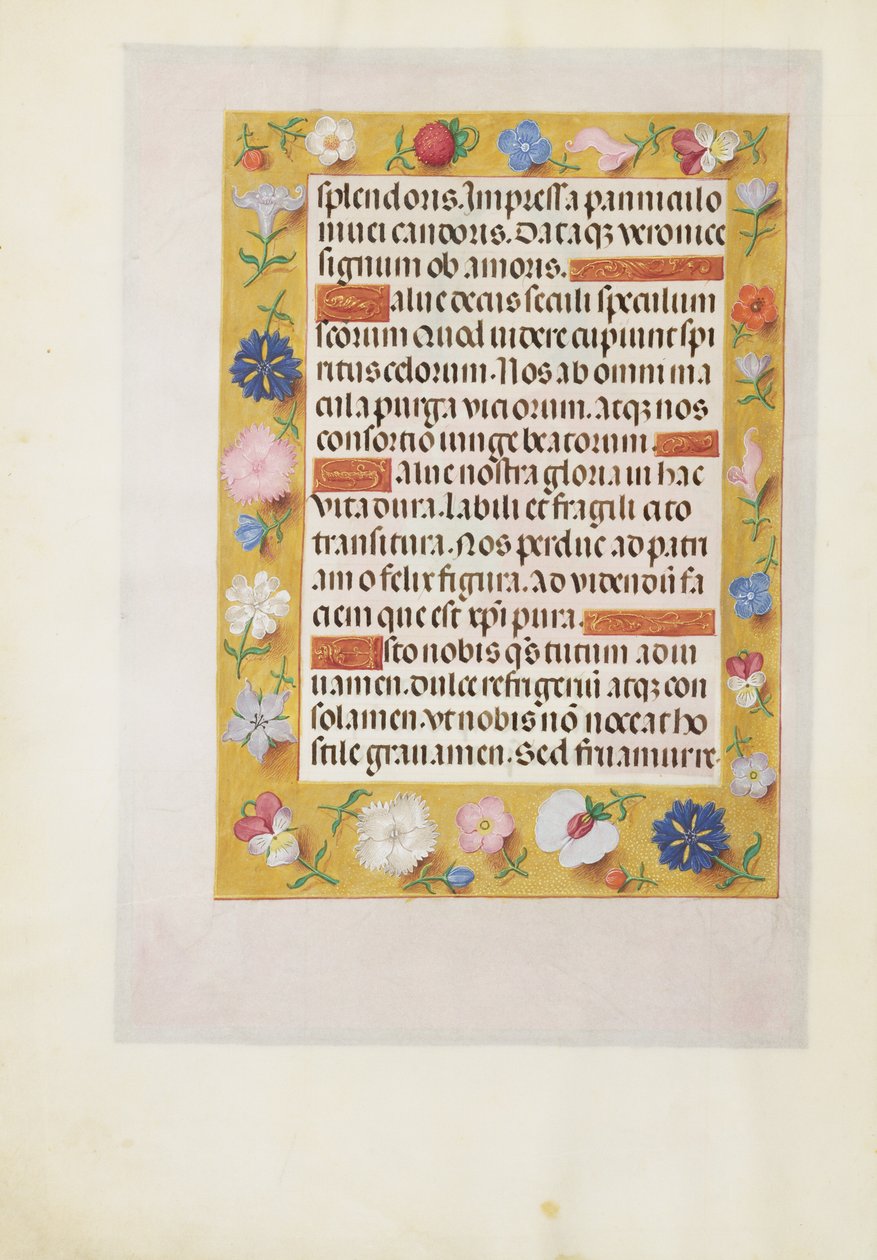 splendoris. Impressa panniculo
nivei candoris. Dataqꝫ veronice
signum ob amoris.
Salue decus seculi speculum
scorum Quod videre cupiunt spi
ritus celorum. Nos ab omni ma
cula purga viciorum. Atqꝫ nos
consortiō iunge beatorum.
Salue nostra gloria in hac
vita dura. labili et fragili cito
transitura. Nos perduc ad patri
am o felix figura. Ad videndū fa
ciem que est xp̄i pura.
Esto nobis qs̄ tutum adiu
uamen. dulce refrigeriū atqꝫ con
solamen. vt nobis nō noceat ho
stile grauamen. Sed fruamur re-